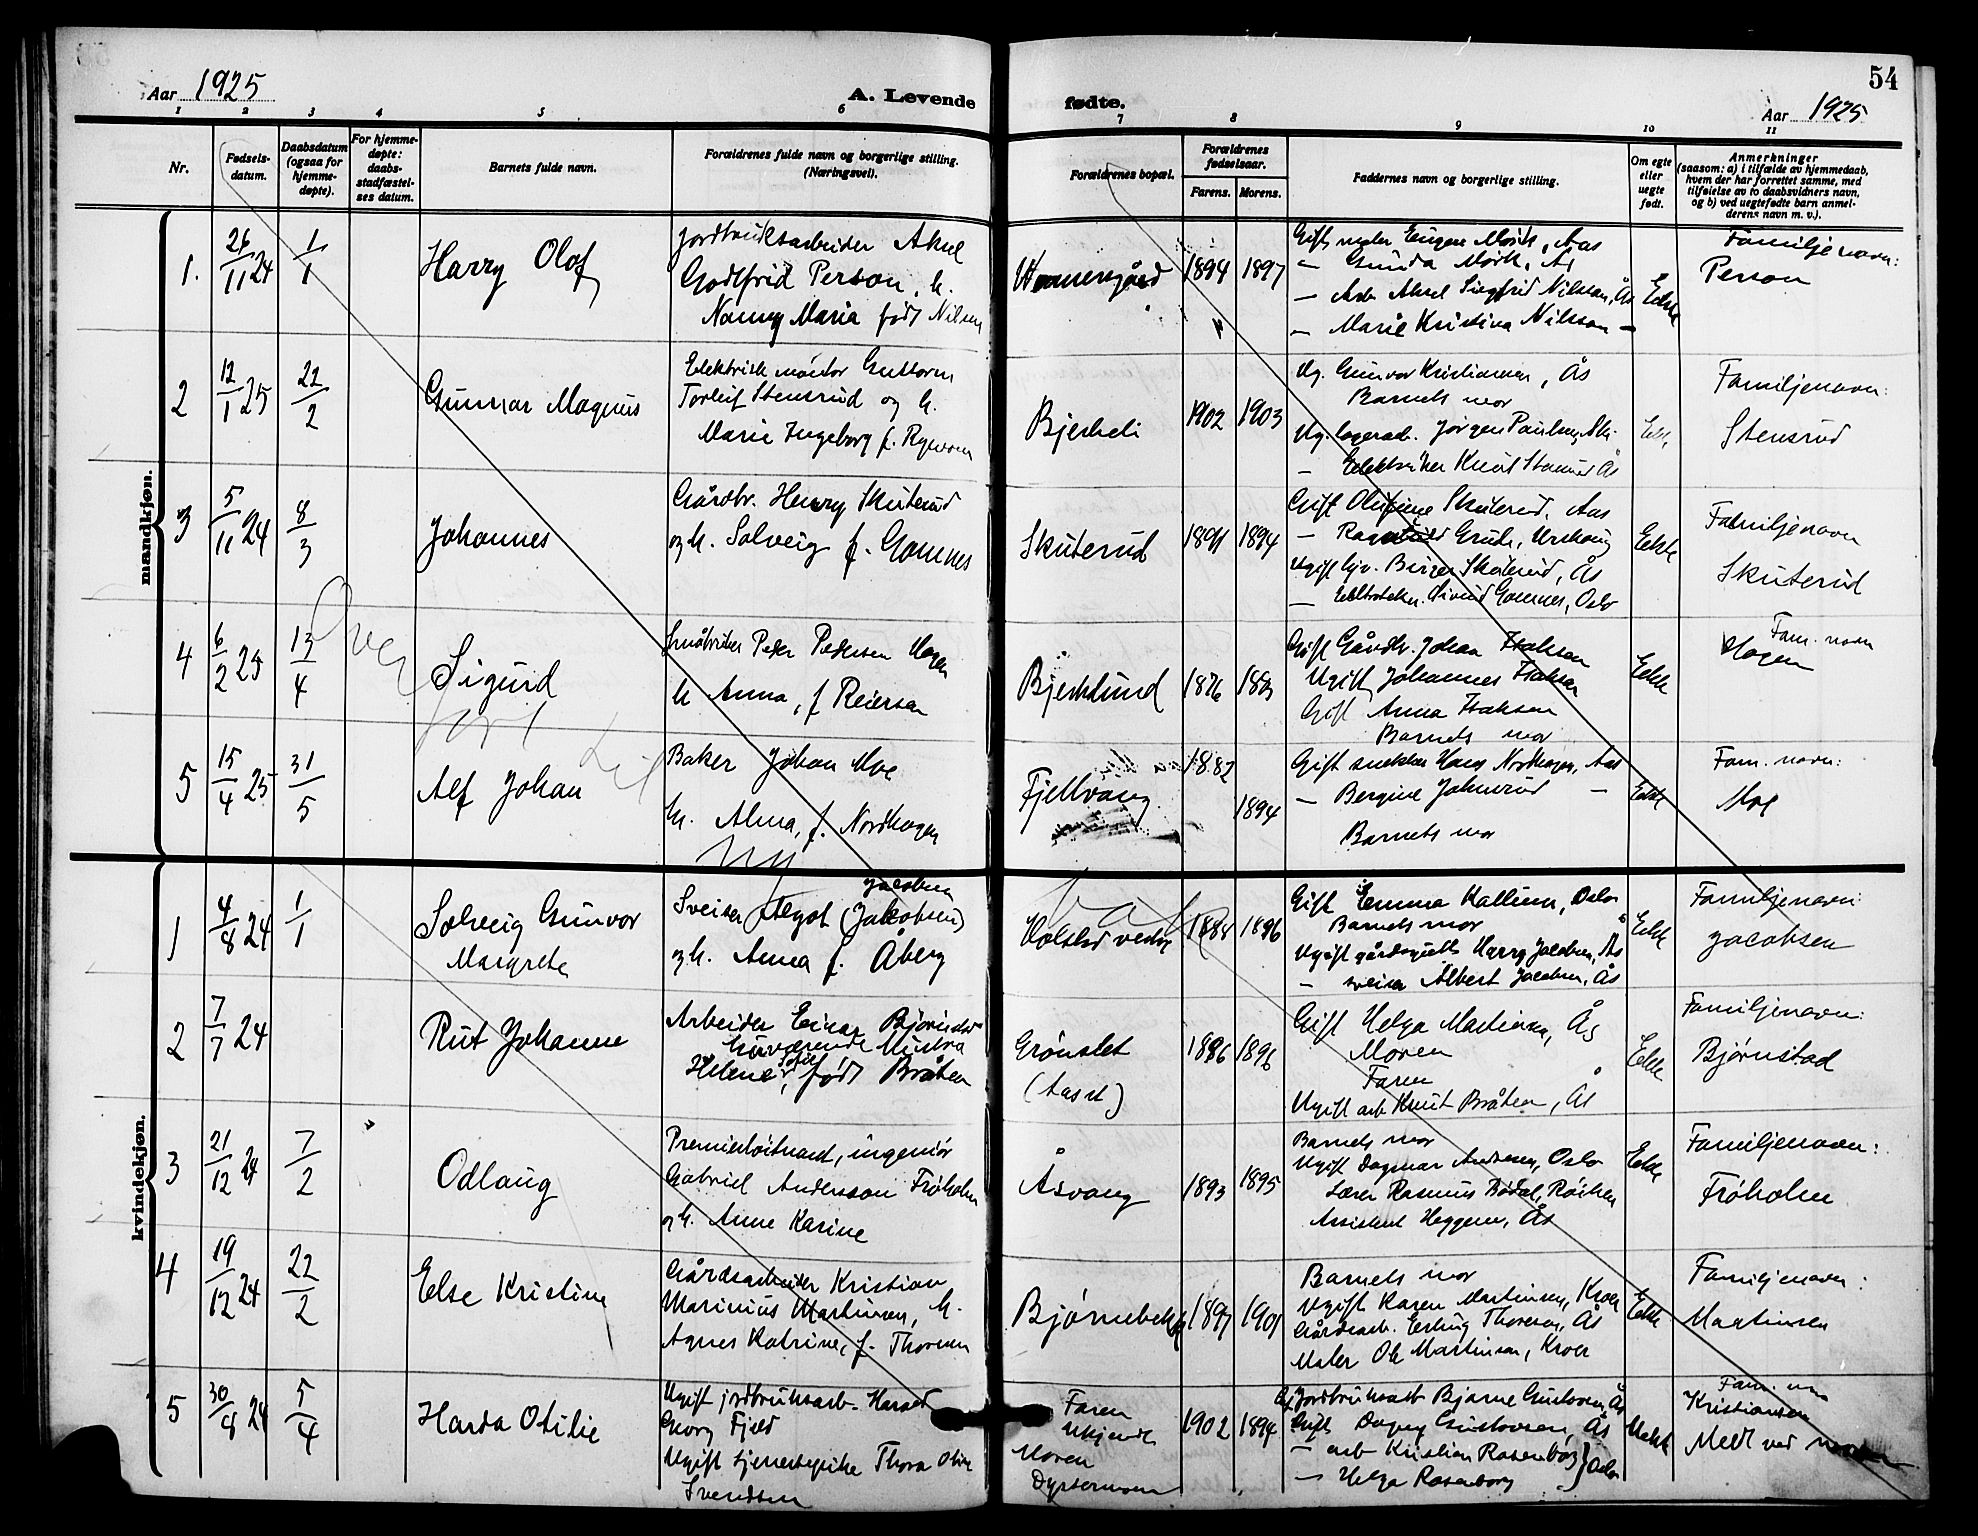 54
Aar 1925
A. Levende fødte.
Aar 1925
1 2 3 4 5 6 7 8 9 10 11
Nr.
Fødsels-
datum.
Daabsdatum
(ogsaa for
hjemme-
døpte).
For hjemme-
døpte:
daabs-
stadfæstel-
ses datum.
Barnets fulde navn.
Forældrenes fulde navn og borgerlige stilling.
(Næringsvei).
Forældrenes bopæl.
Forældrenes
fødselsaar.
Farens. Morens.
Faddernes navn og borgerlige stilling.
Om egte
eller
uegte
født.
Anmerkninger
(saasom: a) i tilfælde av hjemmedaab,
hvem der har forrettet samme, med
tilføielse av to daabsvidners navn,
og b) ved uegtefødte barn anmel-
derens navn m. v.).
mandkjøn.
1. 26/11 24 1/1
Harry Olof
Jordbruksarbeider Aksel
Godtfrid Person, h.
Nanny Maria født Nilsen
1894 1897
Gift maler Eugen Mørk, Aas
— Gunda Mørk, Ås
— Arb Aksel Siegfrid Nilsson, Ås
— Marie Kristina Nilsson —
Ekte
Familjenavn:
Person
2 12/1 25 22/2
Gunnar Magnus
Elektrisk montør Guttorm
Torleif Stensrud og h.
Marie Ingeborg f.
Bjerkeli
1902 1903
Ug. Gunvor Kristiansen, Ås
Barnets mor
Ug. lagerarb. Jørgen Paulsen, Ski
— Elektriker Knut Stensrud Ås
Ekte
Familjenavn:
Stensrud
3 5/11 24 8/3
Johannes
Gårdbr. Henry Skuterud
og h. Solveig f. Gomnes
Skuterud
1891 1894
Gift Olufine Skuterud, Aas
— Grude,
Ugift Birger Skuterud, Ås
— Sivert Gomnes, Oslo
Ekte
Familjenavn
Skuterud
4 6/2 25 13/4
Sigurd
Småbruker Peder Pedersen Hagen
h Anna, f Reiersen
Bjerklund
1876
Gift Gårdbr. Johan Isaksen
Ugift Johannes Isaksen
Gift Anna Isaksen
Barnets mor
Ekte
Fam. navn
Hagen
5 15/4 25 31/5
Alf Johan
Baker Johan Moe
h. Alma, f. Nordhagen
Fjellvang
1882
1894
Gift snekker Hans Nordhagen, Aas
— Bergine Johnsrud —
Barnets mor
Ekte
Fam. navn:
Moe
Over
ført
til
ny
bok
kvindekjøn.
1 4/8 24 1/1
Solveig Gunvor
Margrete
Jacobsen
Sveiser Algot (Jakobsen)
og h. Anna f. Åberg
Holstad vestre
1888 1896
Gift Emma Kallum, Oslo
Barnets mor
Ugift gårdsgutt Harry Jacobsen, Ås
— sveiser Albert Jacobsen, Ås
Ekte
Familjenavn:
Jacobsen
2 7/7 24
Rut Johanne
Arbeider Einar Bjørnstad
Helene Sofie, født Bråten
Grønslet
(Aaset)
1886 1896
Gift Helga Martinsen, Ås
Moren
Faren
Ugift arb Knut Bråten, Ås
Ekte
Familjenavn:
Bjørnstad
3 21/12 24 7/2
Odlaug
Premierløitnant, ingeniør
Gabriel Andersson Frøholm
og h. Anne Karine
Åsvang
1893 1895
Barnets mor
Ugift Dagmar Andersen, Oslo
Lærer Rasmus Bødal, Røiken
Assistent Heggem, Ås
Ekte
Familjenavn:
Frøholm
4 19/12 24 22/2
Else Kristine
Gårdsarbeider Kristian
Marinius Martinsen, h.
Agnes Katrine, f. Thoresen
Bjørnebekk
1897 1901
Barnets mor
Ugift Karen Martinsen, Kroer
Gårdsarb. Erling Thoresen, Ås
Maler Ole Martinsen, Kroer
Ekte
Familjenavn:
Martinsen
5 30/8 24 5/4
Harda Otilie
Ugift jordbruksarb. Harald
Georg Fjeld
Ugift tjenestepike Thora Oline
Svendsen
Faren
Ukjendt
Moren
Dystermoen
1902 1894
Gift Jordbruksarb Bjarne Gustavsen, Ås
Gift Dagny Gustavsen, Ås
— arb Kristian Rosenborg
— Helga Rosenborg } Oslo
Uekte
Fam. navn
Kristiansen
Meldt ved moren